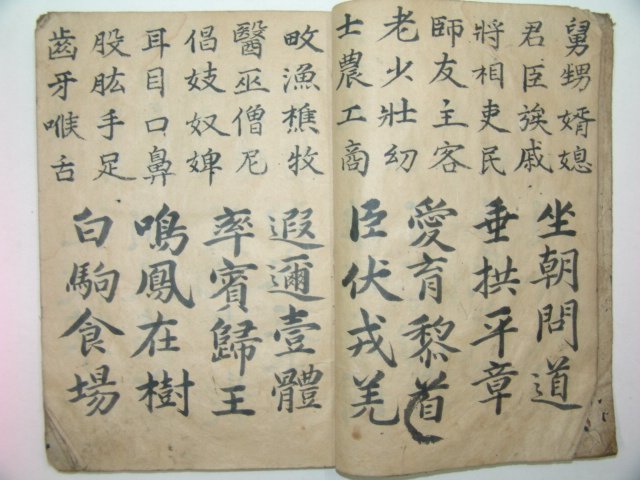 舅甥婿媳
君臣族戚
將相吏民
師友主客
老少壯幼
士農工商
畋漁樵牧
醫巫僧尼
倡妓奴婢
耳目口鼻
股肱手足
齒牙喉舌
坐朝問道
垂拱平章
愛育黎首
臣伏戎羌
遐邇壹體
率賓歸王
鳴鳳在樹
白駒食場